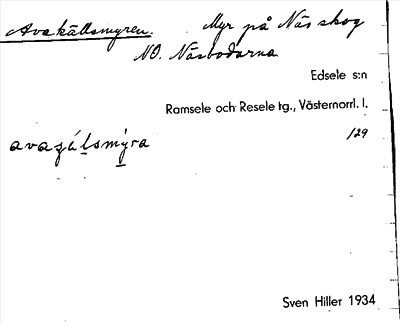 Avakällsmyren. Myr på Näs skog
NO. Näsbodarna
Edsele s:n
Ramsele och Resele tg., Västernorrl. l.
129
avaȥálsmýra
Sven Hiller 1934